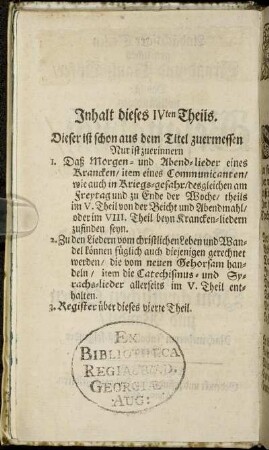 Inhalt dieses IVten Theils.
Dieser ist schon aus dem Titel zuermessen
Nur ist zuerinnern
1. Daß Morgen- und Abend-lieder eines
Krancken/ item eines Communicanten/
wie auch in Kriegs-gefahr/ desgleichen am
Freytag und zu Ende der Woche/ theils
im V. Theil von der Beicht und Abendmahl/
oder im VIII. Theil beyn Krancken-liedern
zufinden seyn.
2. Zu den Liedern vom christlichen Leben und Wan-
del können füglich auch diejenigen gerechnet
werden/ die vom neuen Gehorsam han-
deln/ item die Catechismus- und Sy-
rachs-lieder allerseits im V. Theil ent-
halten.
3. Register über dieses vierte Theil.
EX
BIBLIOTHECA
REGIA
GEORGIÆ
AUG: